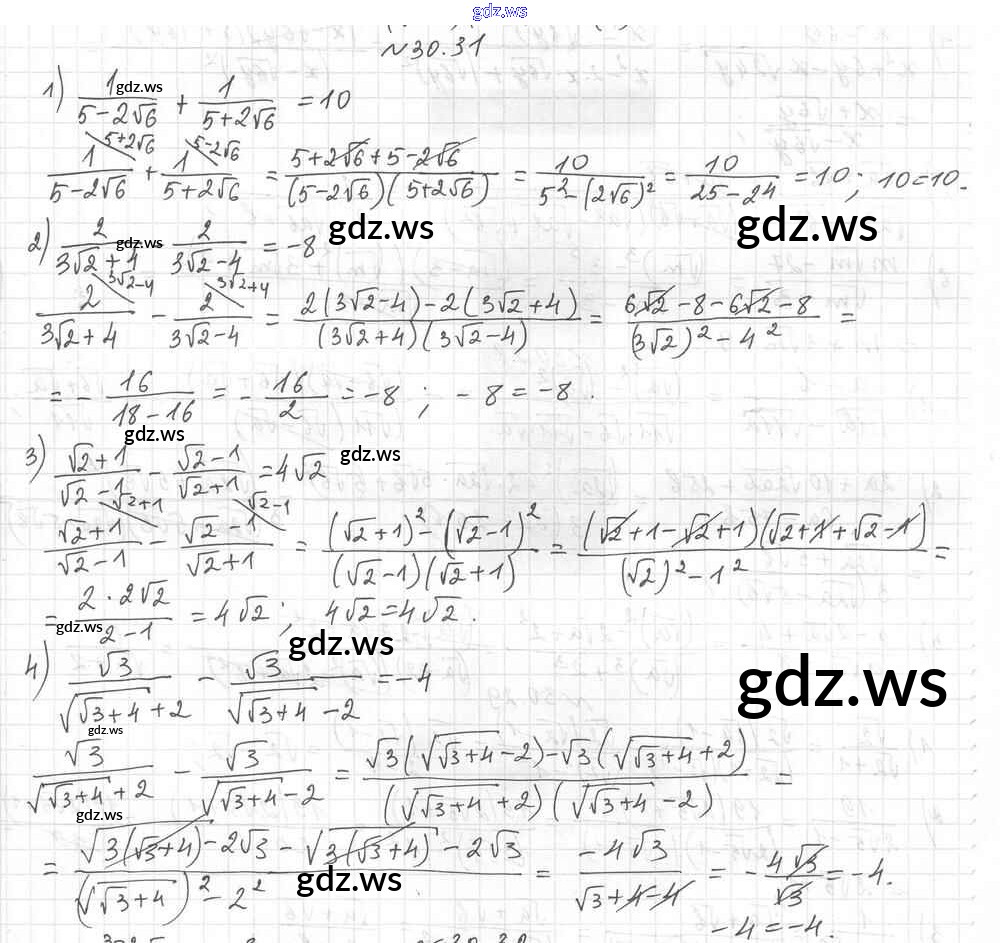 gdz.ws
№30.31
1) 1/(5-2√6) + 1/(5+2√6) = 10
gdz.ws
1/(5-2√6) \5+2√6 + 1/(5+2√6) \5-2√6 = (5+2√6+5-2√6)/((5-2√6)(5+2√6)) = 10/(5²-(2√6)²) = 10/(25-24) = 10; 10=10.
gdz.ws
gdz.ws
2) 2/(3√2+4) - 2/(3√2-4) = -8
gdz.ws
2/(3√2+4) \3√2-4 - 2/(3√2-4) \3√2+4 = (2(3√2-4)-2(3√2+4))/((3√2+4)(3√2-4)) = (6√2-8-6√2-8)/((3√2)²-4²) =
= - 16/(18-16) = - 16/2 = -8; -8=-8.
gdz.ws
3) (√2+1)/(√2-1) - (√2-1)/(√2+1) = 4√2
gdz.ws
(√2+1)/(√2-1) \√2+1 - (√2-1)/(√2+1) \√2-1 = ((√2+1)²-(√2-1)²)/((√2-1)(√2+1)) = ((√2+1-√2+1)(√2+1+√2-1))/((√2)²-1²) =
= (2·2√2)/(2-1) = 4√2; 4√2=4√2.
gdz.ws
gdz.ws
4) √3/(√(√3+4)+2) - √3/(√(√3+4)-2) = -4
gdz.ws
gdz.ws
√3/(√(√3+4)+2) - √3/(√(√3+4)-2) = (√3(√(√3+4)-2)-√3(√(√3+4)+2))/((√(√3+4)+2)(√(√3+4)-2)) =
gdz.ws
= (√(3(√3+4))-2√3-√(3(√3+4))-2√3)/((√(√3+4))²-2²) = (-4√3)/(√3+4-4) = - 4√3/√3 = -4.
gdz.ws
-4=-4.